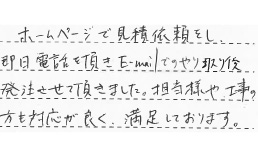 ホームページで見積依頼をし、
即日電話を頂きE-mailでのやり取り後
発注させて頂きました。担当様や工事の
方も対応が良く、満足しております。